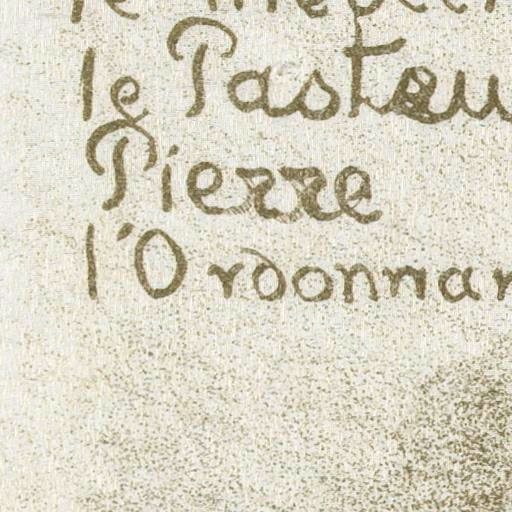 le
le Pasteu
Pierre
l'Ordonnan